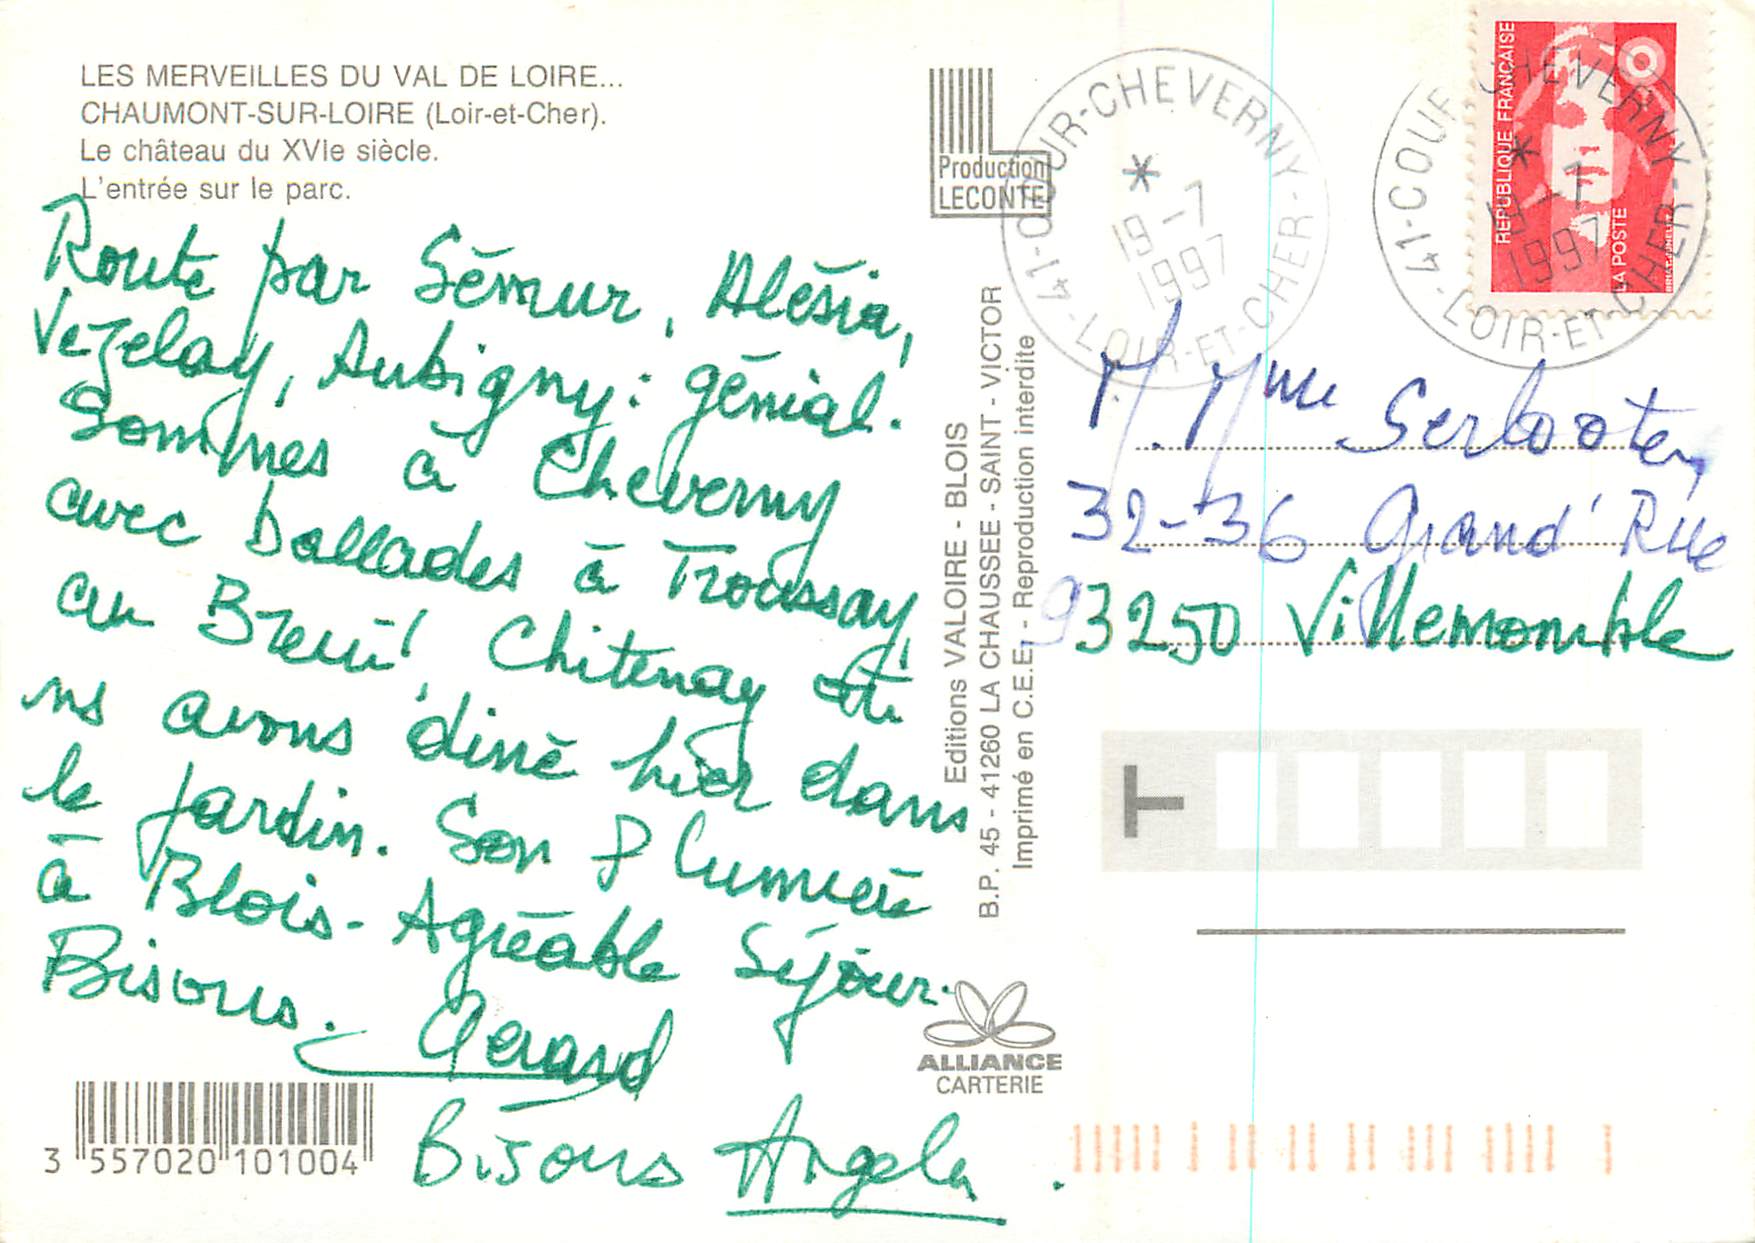 LES MERVEILLES DU VAL DE LOIRE...
CHAUMONT-SUR-LOIRE (Loir-et-Cher).
Le château du XVIe siècle.
L'entrée sur le parc.
Route par Sémur, Alésia,
Vezelay, Aubigny : génial.
Sommes à Cheverny
avec ballades à Troussay,
au Breuil, Chitenay où
ns avons diné hier dans
le jardin. Son & lumière
à Blois - Agréable séjour.
Bisous. Gérard
Bisous Angela.
3 557020 101004
Production
LECONTE
Editions VALOIRE - BLOIS
B.P. 45 - 41260 LA CHAUSSEE - SAINT - VICTOR
Imprimé en C.E.E. - Reproduction interdite
ALLIANCE
CARTERIE
41-COUR-CHEVERNY-
*
19-7
1997
LOIR-ET-CHER
41-COUR-CHEVERNY-
*
19-7
1997
LOIR-ET-CHER
REPUBLIQUE FRANÇAISE
LA POSTE
M. Mme
32-36 Grand' Rue
93250 Villemomble
T